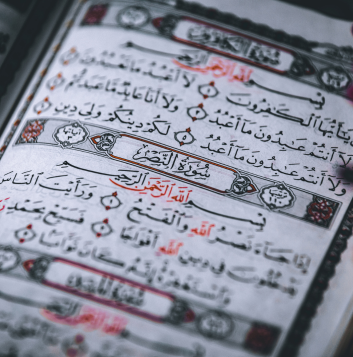 سُورَةُ الْكَافِرُونَ
بِسْمِ اللَّهِ الرَّحْمَٰنِ الرَّحِيمِ
يَٰٓأَيُّهَا الْكَٰفِرُونَ ١ لَآ أَعْبُدُ مَا تَعْبُدُونَ ٢
وَلَآ أَنتُمْ عَٰبِدُونَ مَآ أَعْبُدُ ٣ وَلَآ أَنَا۠ عَابِدٌ مَّا عَبَدتُّمْ ٤
وَلَآ أَنتُمْ عَٰبِدُونَ مَآ أَعْبُدُ ٥ لَكُمْ دِينُكُمْ وَلِيَ دِينِ ٦
سُورَةُ النَّصْرِ
بِسْمِ اللَّهِ الرَّحْمَٰنِ الرَّحِيمِ
إِذَا جَآءَ نَصْرُ اللَّهِ وَالْفَتْحُ ١ وَرَأَيْتَ النَّاسَ
يَدْخُلُونَ فِي دِينِ اللَّهِ أَفْوَاجًا ٢ فَسَبِّحْ بِحَمْدِ
وَاسْتَغْفِرْهُ إِنَّهُۥ كَانَ تَوَّابًۢا ٣
بِسْمِ اللَّهِ الرَّحْمَٰنِ الرَّحِيمِ